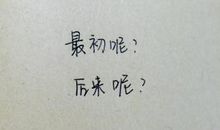 最初呢？
后来呢？